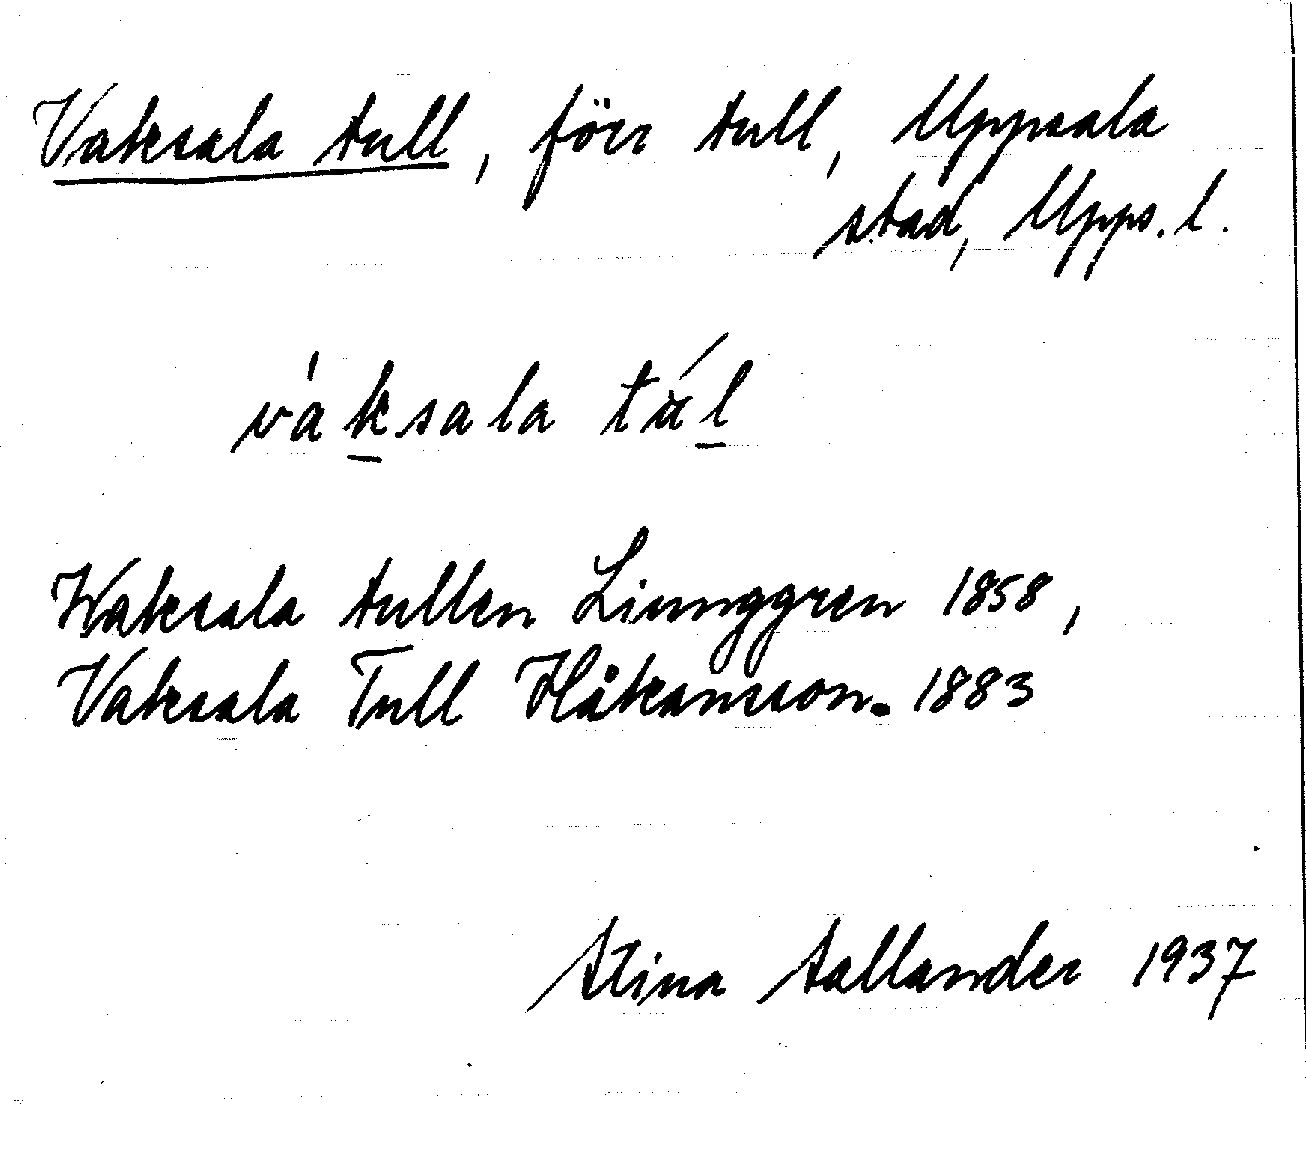 Vaksala tull, förr tull, Uppsala
stad, Upps. l.
váksala túl
Waksala tullen Liunggren 1858,
Vaksala Tull Håkansson. 1883
Stina 1937